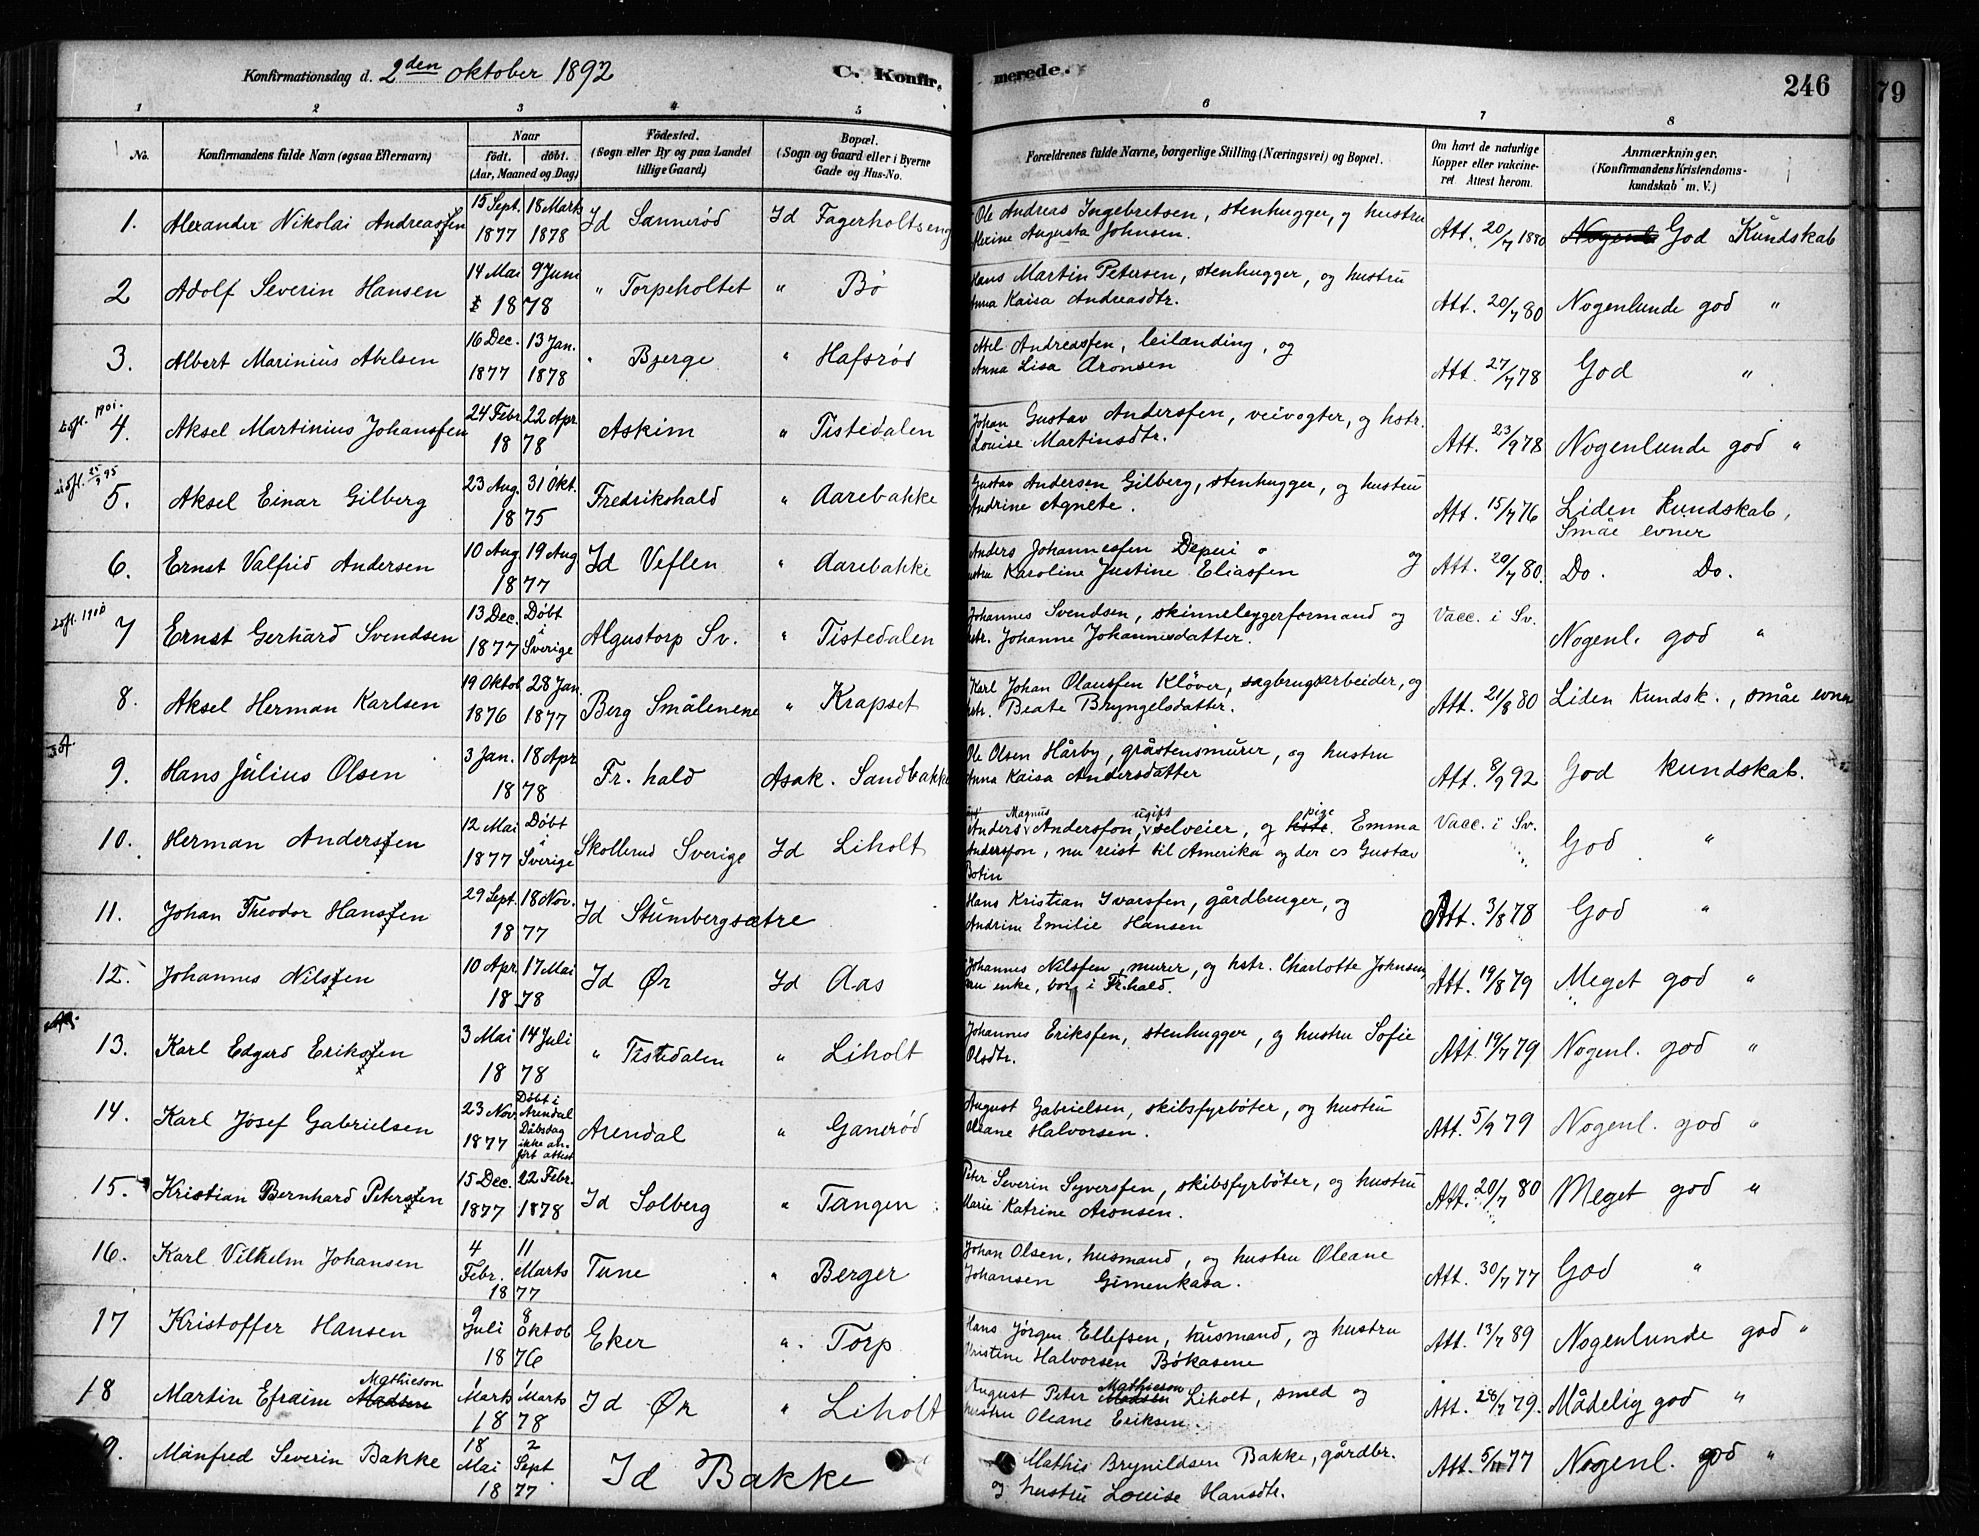 Konfirmationsdag d. 2den oktober 1892
C. Konfir-
merede.
246
79
1 2 3 4 5 6 7 8
No.
Konfirmandens fulde Navn (ogsaa Efternavn)
Naar
født. døbt.
(Aar, Maaned og Dag)
Fødested.
(Sogn eller By og paa Landet
tillige Gaard)
Bopæl.
(Sogn og Gaard eller i Byerne
Gade og Hus-No.
Forældrenes fulde Navne, borgerlige Stilling (Næringsvei) og Bopæl.
Om havt de naturlige
Kopper eller vakcine-
ret Attest herom.
Anmærkninger.
(Konfirmandens Kristendoms-
kundskab m. V.)
1. Alexander Nikolai Andreassen 15 Sept. 1877 18 Marts 1878 Id Sannerød Id Fagerholtseng
Ole Andreas Ingebretsen, stenhugger, og hustru
Alexine Augusta Johnsen.
Att. 20/7 1880 Nogenl. God Kundskab
2 Adolf Severin Hansen 14 Mai 9 Juni 1878 " Torpeholtet " Bø
Hans Martin Petersen, stenhugger, og hustru
Anna Kaisa Andreasdtr.
Att. 20/7 80 Nogenlunde god "
3. Albert Marinius Abelsen 16 Dec. 1877 13 Jan. 1878 " Bjerge " Hafsrød
Abel Andreassen, leilænding, og
Anna Lisa Aronsen
Att. 27/7 78 God "
1901. 4. Aksel Martinius Johanssen 24 Febr 22 Apr 1878 Askim " Tistedalen
Johan Gustav Anderssen, veivogter, og hstr.
Louise Martinsdtr.
Att. 23/9 78 Nogenlunde god "
25/9 95 5. Aksel Einar Gilberg 23 Aug. 31 Okt. 1875 Fredrikshald " Aarebakke
Gustav Andersen Gilberg, stenhugger, og hustru
Andrine Agnete.
Att. 15/7 76 Liden Kundskab,
Småe evner
6. Ernst Valfrid Andersen 10 Aug 19 Aug 1877 Id Veflen " Aarebakke
Anders Johannessen og
hustru Karoline Justine Eliassen
Att. 20/7 80. Do. Do.
7 Ernst Gerhard Svendsen 13 Dec. 1877 Døbt i Sverige Algustorp Sv. " Tistedalen
Johannes Svendsen, skinneleggerformand og
hstr. Johanne Johannesdatter.
Vacc. i Sv. Nogenl. god "
8. Aksel Herman Karlsen 19 Oktob 1876 28 Jan. 1877 Berg Smålenene " Krapset
Karl Johan Olaussen Kløver, sagbrugsarbeider, og
hstr. Beate Bryngelsdatter.
Att. 21/8 80 Liden Kundsk., småe evner
9. Hans Julius Olsen 3 Jan. 18 Apr 1878 Fr. hald Asak. Sandbakke
Ole Olsen Hårby, gråstensmurer, og hustru
Anna Kaisa Andersdatter
Att. 8/9 92 God kundskab.
10. Herman Anderssen 12 Mai 1877 Døbt i Sverige Skollerud Sverige Id Liholt
Magnus ugift pige
Anders Andersson, selveier, og hstr. Emma
Andersson, nu reist til Amerika og der es Gustav
Botin
Vacc. i Sv. God "
11. Johan Theodor Hanssen 29 Sept. 18 Nov. 1877 Id Stumbergsætre
Hans Kristian Ivarssen, gårdbruger, og
Andrine Emilie Hansen
Att. 3/8 78 God "
12. Johannes Nilssen 10 Apr 17 Mai 1878 Id Ør Id Aas
Johannes Nilssen, murer, og hstr. Charlotte Johnsen,
nu enke, bor i Fr.hald.
Att. 19/8 79 Meget god "
13. Karl Edgard Erikssen 3 Mai 14 Juli 1878 " Tistedalen " Liholt
Johannes Erikssen, stenhugger, og hustru Sofie
Olsdtr.
Att. 19/7 79 Nogenl. god "
14. Karl Josef Gabrielsen 23 Nov. 1877 Døbt i Arendal Dåbsdag ikke an-ført attest Arendal " Ganerød
August Gabrielsen, skibsfyrbøter, og hustru
Oleane Halvorsen.
Att. 5/9 79 Nogenl. god "
15. Kristian Bernhard Peterssen 15 Dec. 1877 22 Febr. 1878 Id Solberg " Tangen
Peter Severin Syverssen, skibsfyrbøter, og hustru
Marie Katrine Aronsen.
Att. 20/7 80 Meget god "
16. Karl Vilhelm Johansen 4 Febr. 11 Marts 1877 Tune " Berger
Johan Olsen, husmand, og hustru Oleane
Johansen Gimenkasa.
Att. 30/7 77 God "
17 Kristoffer Hansen 9 Juli 8 Oktob 1876 Eker " Torp
Hans Jørgen Ellefsen, husmand, og hustru
Kristine Halvorsen Bökasene
Att. 13/7 89 Nogenlunde god "
18 Martin Efraim Madsen Mathieson 1 Marts 1 Marts 1878 Id Ør " Liholt
August Peter Madsen Mathieson Liholt, smed og
hustru Oleane Eriksen.
Att. 28/7 79. Mådelig god "
9. Manfred Severin Bakke 18 Mai 2 Sept 1877 Id Bakke
Mathis Brynildsen Bakke, gårdbr.
og hustru Louise Hansdtr.
Att. 5/11 77 Nogenl. god "